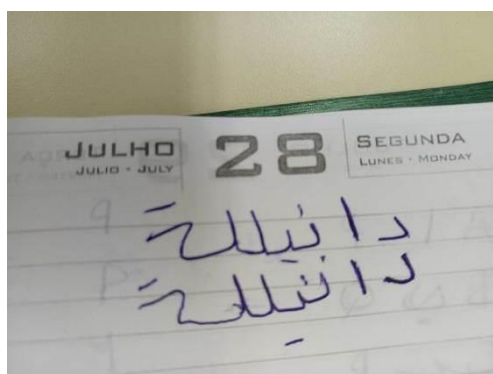 JULHO
JULIO · JULY
28
SEGUNDA
LUNES · MONDAY
دانيللة
دانيللة